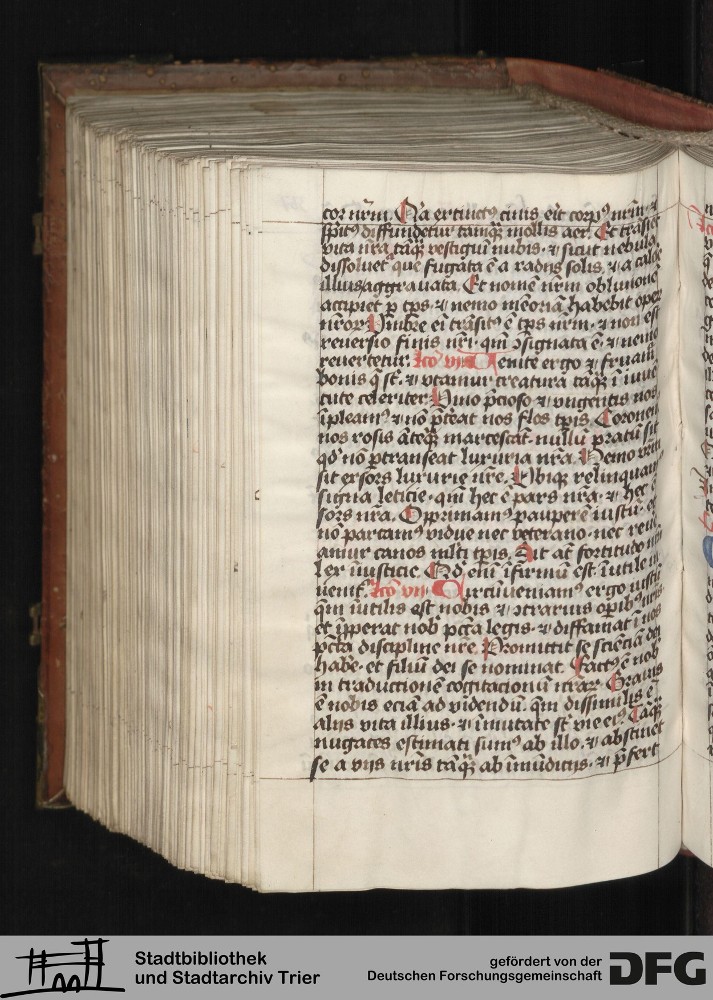 cor nr̄m. Qꝛa extinctꝰ cinis eīt corpꝰ nr̄m ⁊
sp̄itꝰ diffundetur tamqꝫ mollis aer. Et trāsiet
vita nr̄a tāqꝫ vestigiū nubis ⁊ sicut nebula
dissoluet᷑ que fugata ē a radijs solis ⁊ a calore
illius aggrauata. Et nomē nr̄m obliuionē
accipiet p tp̄s ⁊ nemo mēoriā habebit oper
nr̄oꝝ Vmbre eī trāsitꝰ ē tp̄s nr̄m ⁊ non est
reuersio finis nr̄i qm̄ ↄsignata ē ⁊ nemo
reuertetur. lc̄o vi Uenite ergo ⁊ fruam̄
bonis q̄ st̄ ⁊ vtamur creatura tāqꝫ ī iuuē
tute celeriter Vino p̄cioso ⁊ vngentis nos
īpleamꝰ ⁊ nō p̄teat nos flos tp̄is Coronem̄
nos rosis āteqꝫ marcescāt nullū pratū sit
qd̓ nō ꝑtranseat luxuria nr̄a. Nemo vr̄m
sit exsors luxurie nr̄e. Vbiqꝫ relinquam̄
signa leticie qm̄ hec ē pars nr̄a ⁊ hec ē
sors nr̄a. Opprimamꝰ pauperē iustū et
nō parcamꝰ vidue nec veterano nec reue
amur canos ml̓ti tp̄is. Sit at̄ fortitudo nr̄a
lex iusticie. Qd̓ enī īfirmū est īutile in
uenit᷑. lc̄o vii Circūueniamꝰ ergo iustū
qm̄ īutilis est nobis ⁊ ↄtrarius oꝑibꝰ nr̄is
et īpperat nob̓ pc̄ca legis ⁊ diffamat ī nos
pc̄ca discipline nr̄e. Promittit se sciēciā dei
habe̓ et filiū dei se nominat. Factꝰ ē nob̓
in traductionē cogitacionū nr̄aꝝ Grauis
ē nobis eciā ad videndū qm̄ dissimilis ē
alijs vita illius ⁊ īmutate st̄ vie eiꝰ Tāqꝫ
nugaces estimati sumꝰ ab illo ⁊ abstinet
se a vijs nr̄is tāqꝫ ab īmūdicijs ⁊ p̄fert
Stadtbibliothek
und Stadtarchiv Trier
gefördert von der
Deutschen Forschungsgemeinschaft DFG